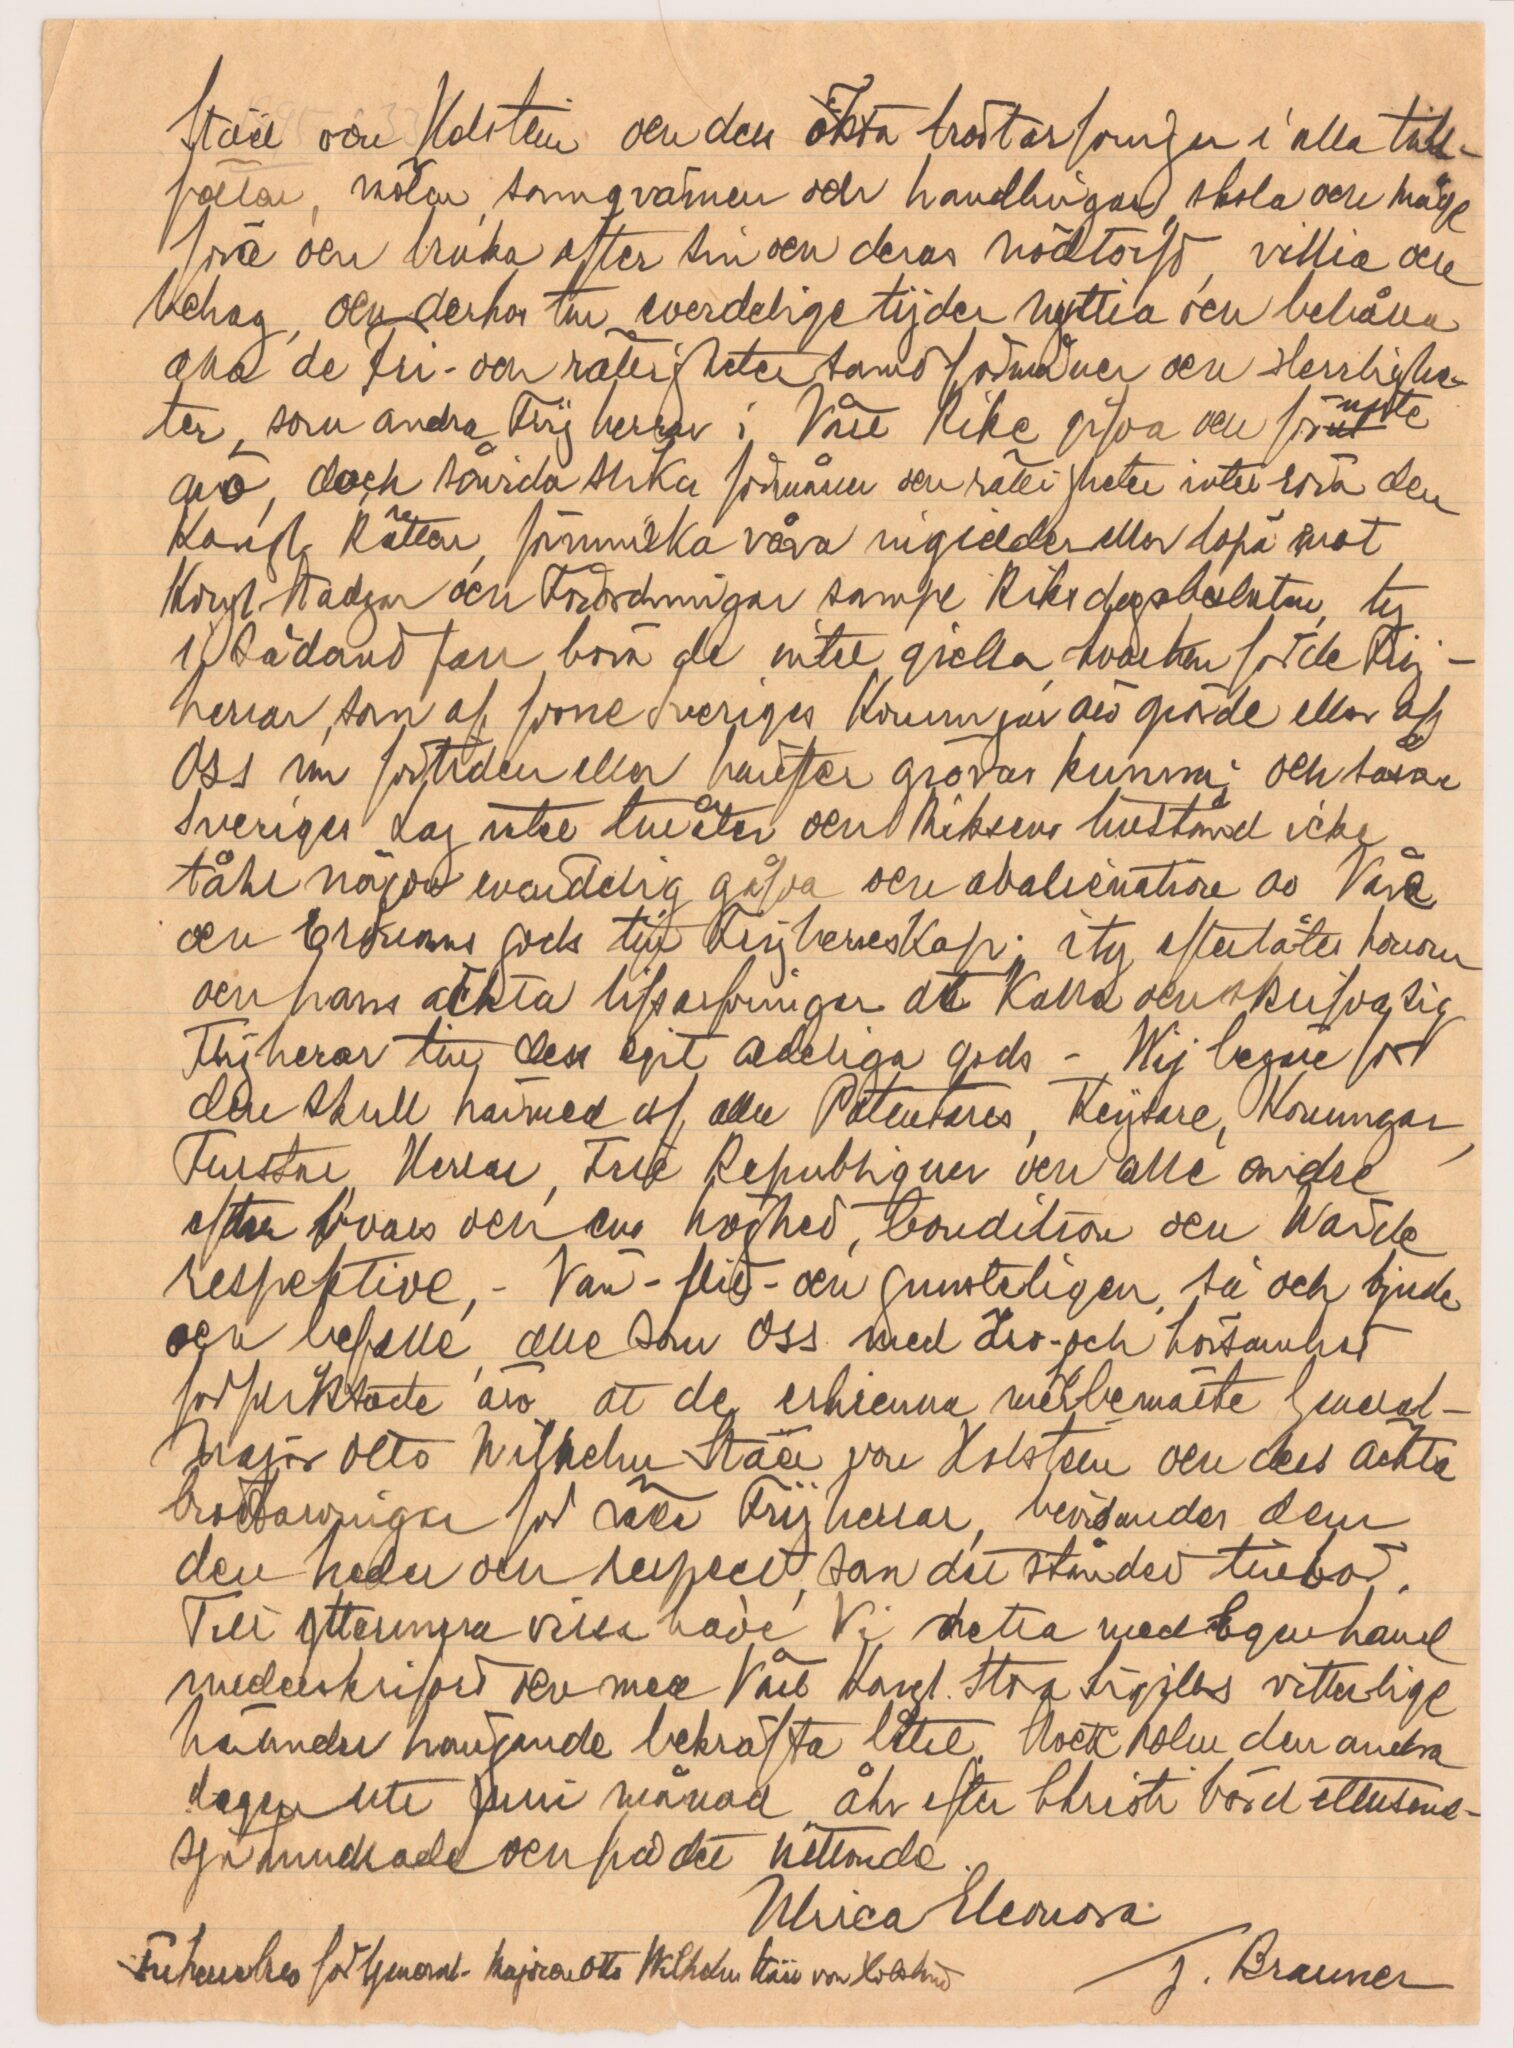 Staël von Holstein och dess äkta bröstarfvingar i alla till-
fällen, möten, samqvämen och handlingar, skola och måge
föra och bruka efter sin och deras nödtorft, villia och
behag, och derhos till everdelige tijder nyttia och behålla
alla de Fri- och rättigheter samt förmåner och Herrlighe-
ter, som andra Frijherrar i Våre Rike gifva och förunte
äro, doch såvida slika förmåner och rättigheter intet röra den
Kongl. Rätten, förminska våra ellor löpa mot
Kongl. Stadgar och Förordningar sampt Riksdagsbesluten, ty
i sådant fall böra de intet giella, hvarken för de Frij-
herrar, som af forne Sveriges Konungar äro giorde eller af
Oss nu förtiden eller härefter giöras kunna; och såsom
Sveriges Lag intet tillåter och Riksens tillstånd icke
tåhl någon everdelig gåfva och abalienation av Våre
och Cronans gods till Frijherreskap; ity efterlåtes honom
och hans äckta lifsarfvingar att kalla och skrifva sig
Frijherrar till dess egit adeliga gods - Wij begäre för
den skull härmed af alla Potentater, Keijsare, Konungar,
Furstar, Herrar, Frie Republiquer och alle andre
efter hvars och ens höghed, Condition och Wärde
respektive, - Vän- flit- och gunsteligen, så och bjude
och befalle, alle som Oss med Tro- och hörsamhet
förpliktade äro at de erkienna mehrbemälte General-
Major Otto Wilhelm Staël von Holstein och dess äckta
bröstarvingar för rätta Frijherrar, bevisandes dem
den heder och respect, som det ståndet tillhör.
Till yttermera visso have Vi detta med Egen hand
underskrifvit och med Våre Kongl. Stora Sigillets vitterlige
hängande bekräfta låtit. Stockholm den andra
dagen uti Juni månad åhr efter Christi börd ettusend-
sjuhundrade och på det nittonde.
Ulrica Eleonora.
J. Brauner
Friherrebref för General-Majoren Otto Wilhelm Staël von Holstein